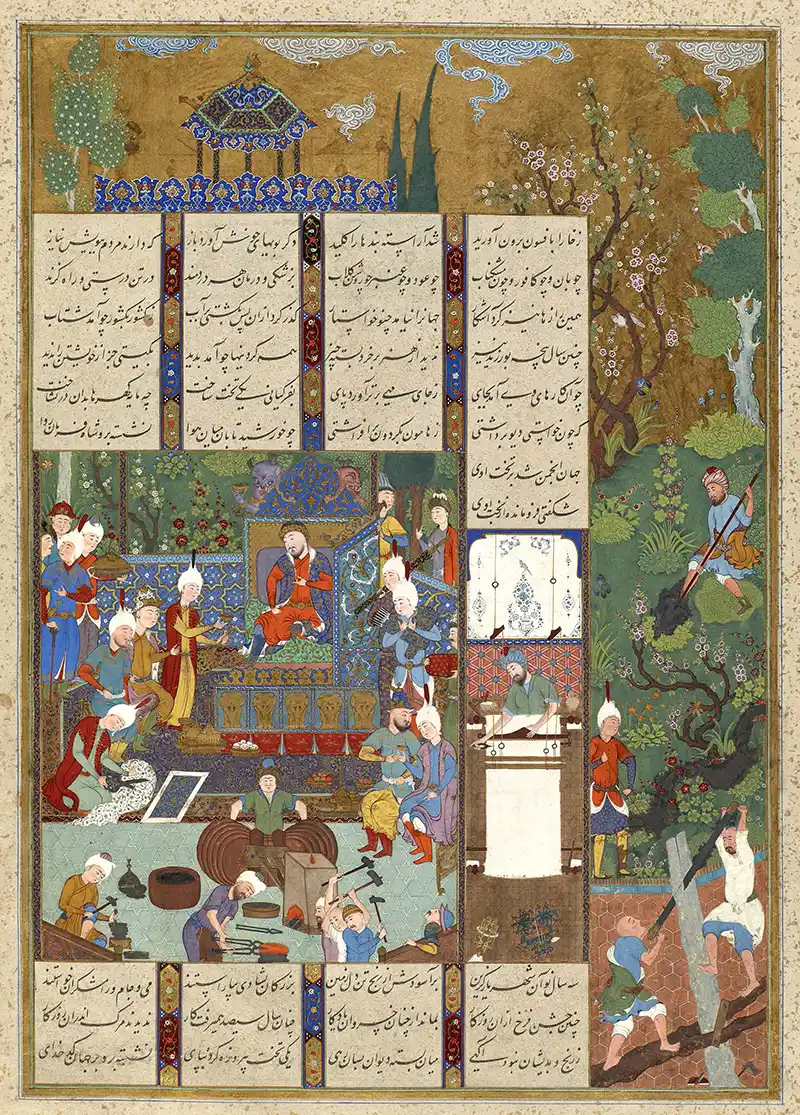 زخارا بافسون برون آورید شد آراسته بندها را کلید دگر بویهای خوش آورد باز که دارند مردم ببویش نیاز
چو بان و چو کافور و چون مشک ناب چو عود و چو عنبر چو روشن گلاب پزشکی و درمان هر دردمند در تن درستی و راه گزند
همین رازها نیز کرد آشکار جهانرا نیامد چنو خواستار گذر کرد ازان پس بکشتی بر آب ز کشور بکشور چو آمد شتاب
چنین سال پنجه بورزید نیز ندید از هنر بر خرد بسته چیز همه کردنیها چو آمد پدید بگیتی جز از خویشتن را ندید
چو آن کارهای وی آمد بجای ز جای مهی برتر آورد پای بفر کیانی یکی تخت ساخت چه مایه گهرها بدان در نشاخت
که چون خواستی دیو برداشتی ز هامون بگردون برافراشتی چو خورشید تابان میان هوا نشسته برو شاه فرمان روا
جهان انجمن شد بر تخت اوی
شگفتی فرومانده از بخت اوی
سال نو آن شهریار گزین برآسود از رنج تن دل ز کین بزرگان بشادی بیاراستند می و جام و رامشگران خواستند
چنین جشن فرخ ازان روزگار بماند از چنان خسروان یادگار چنان سال سیصد همی رفت کار ندیدند مرگ اندران روزگار
ز رنج و ز بدشان نبود آگهی میان بسته دیوان بسان رهی یکی تخت پیروزه کرده بپای نشسته برو بر جهان کدخدای